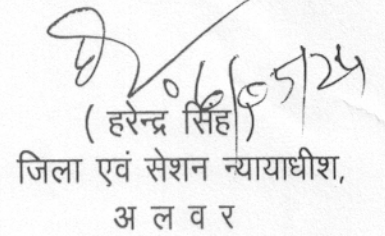 06/05/24
( हरेन्द्र सिंह )
जिला एवं सेशन न्यायाधीश,
अ ल व र